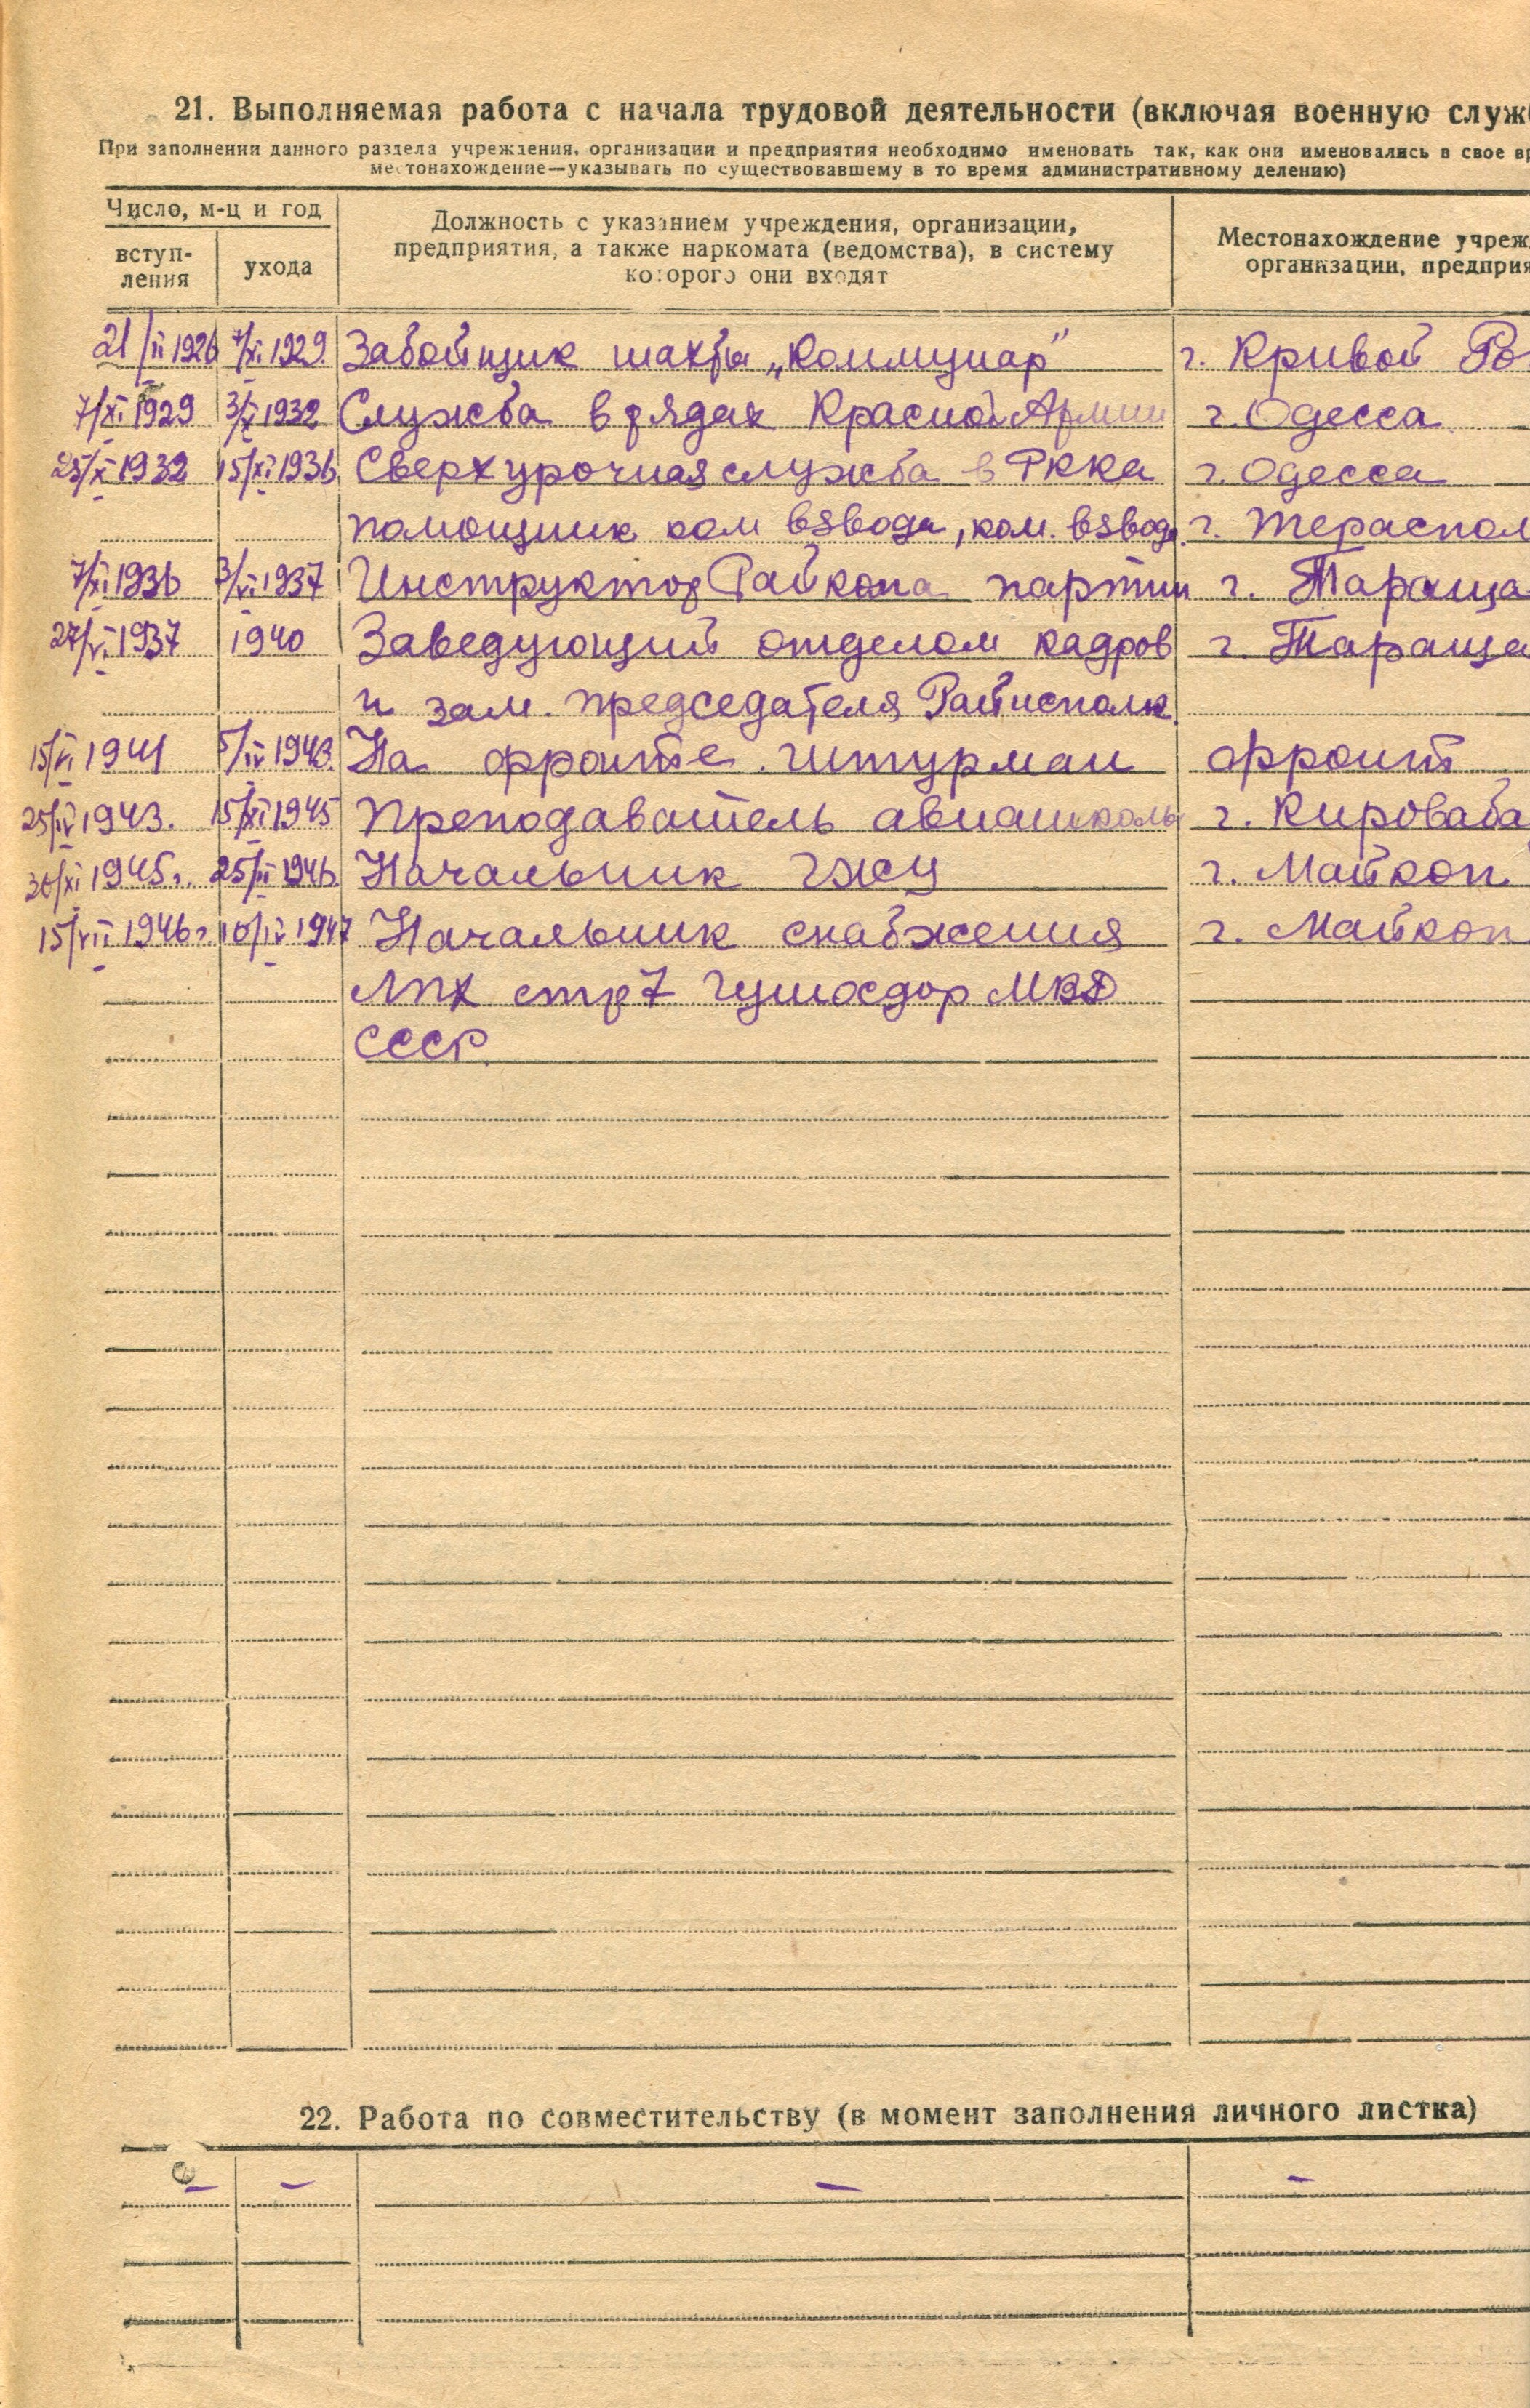 21. Выполняемая работа с начала трудовой деятельности (включая военную служ
При заполнении данного раздела учреждения, организации и предприятия необходимо именовать так, как они именовались в свое вр
местонахождение—указывать по существовавшему в то время административному делению)
Число, м-ц и год
вступ-
ления
ухода
Должность с указанием учреждения, организации,
предприятия, а также наркомата (ведомства), в систему
которого они входят
Местонахождение учреж
организации, предприя
21/II 1926 7/XI 1929. Забойщик шахты „Коммунар" г. Кривой Ро
7/XI 1929 3/X 1932 Служба в рядах Красной Армии г. Одесса
25/X 1932 15/XI 1936 Сверхурочная служба в РККа г. Одесса
помощник ком взвода, ком. взвода г. Тераспол
7/XI 1936 3/VI 1937 Инструктор Райкопа партии г. Тараща
27/VI 1937 1940 Заведующий отделом кадров г. Тараща
и зам. председателя Райисполк.
15/VI 1941 5/IV 1943. На фронте. штурман фронт
25/IV 1943. 15/XI 1945 Преподаватель авиашколы г. Кироваба
30/XI 1945г. 25/II 1946 Начальник гжу г. Майкоп
15/VII 1946г 10/IV 1947 Начальник снабжения г. Майкоп
лпх стр 7 Гушосдор МВД
СССР.
22. Работа по совместительству (в момент заполнения личного листка)
— — — —